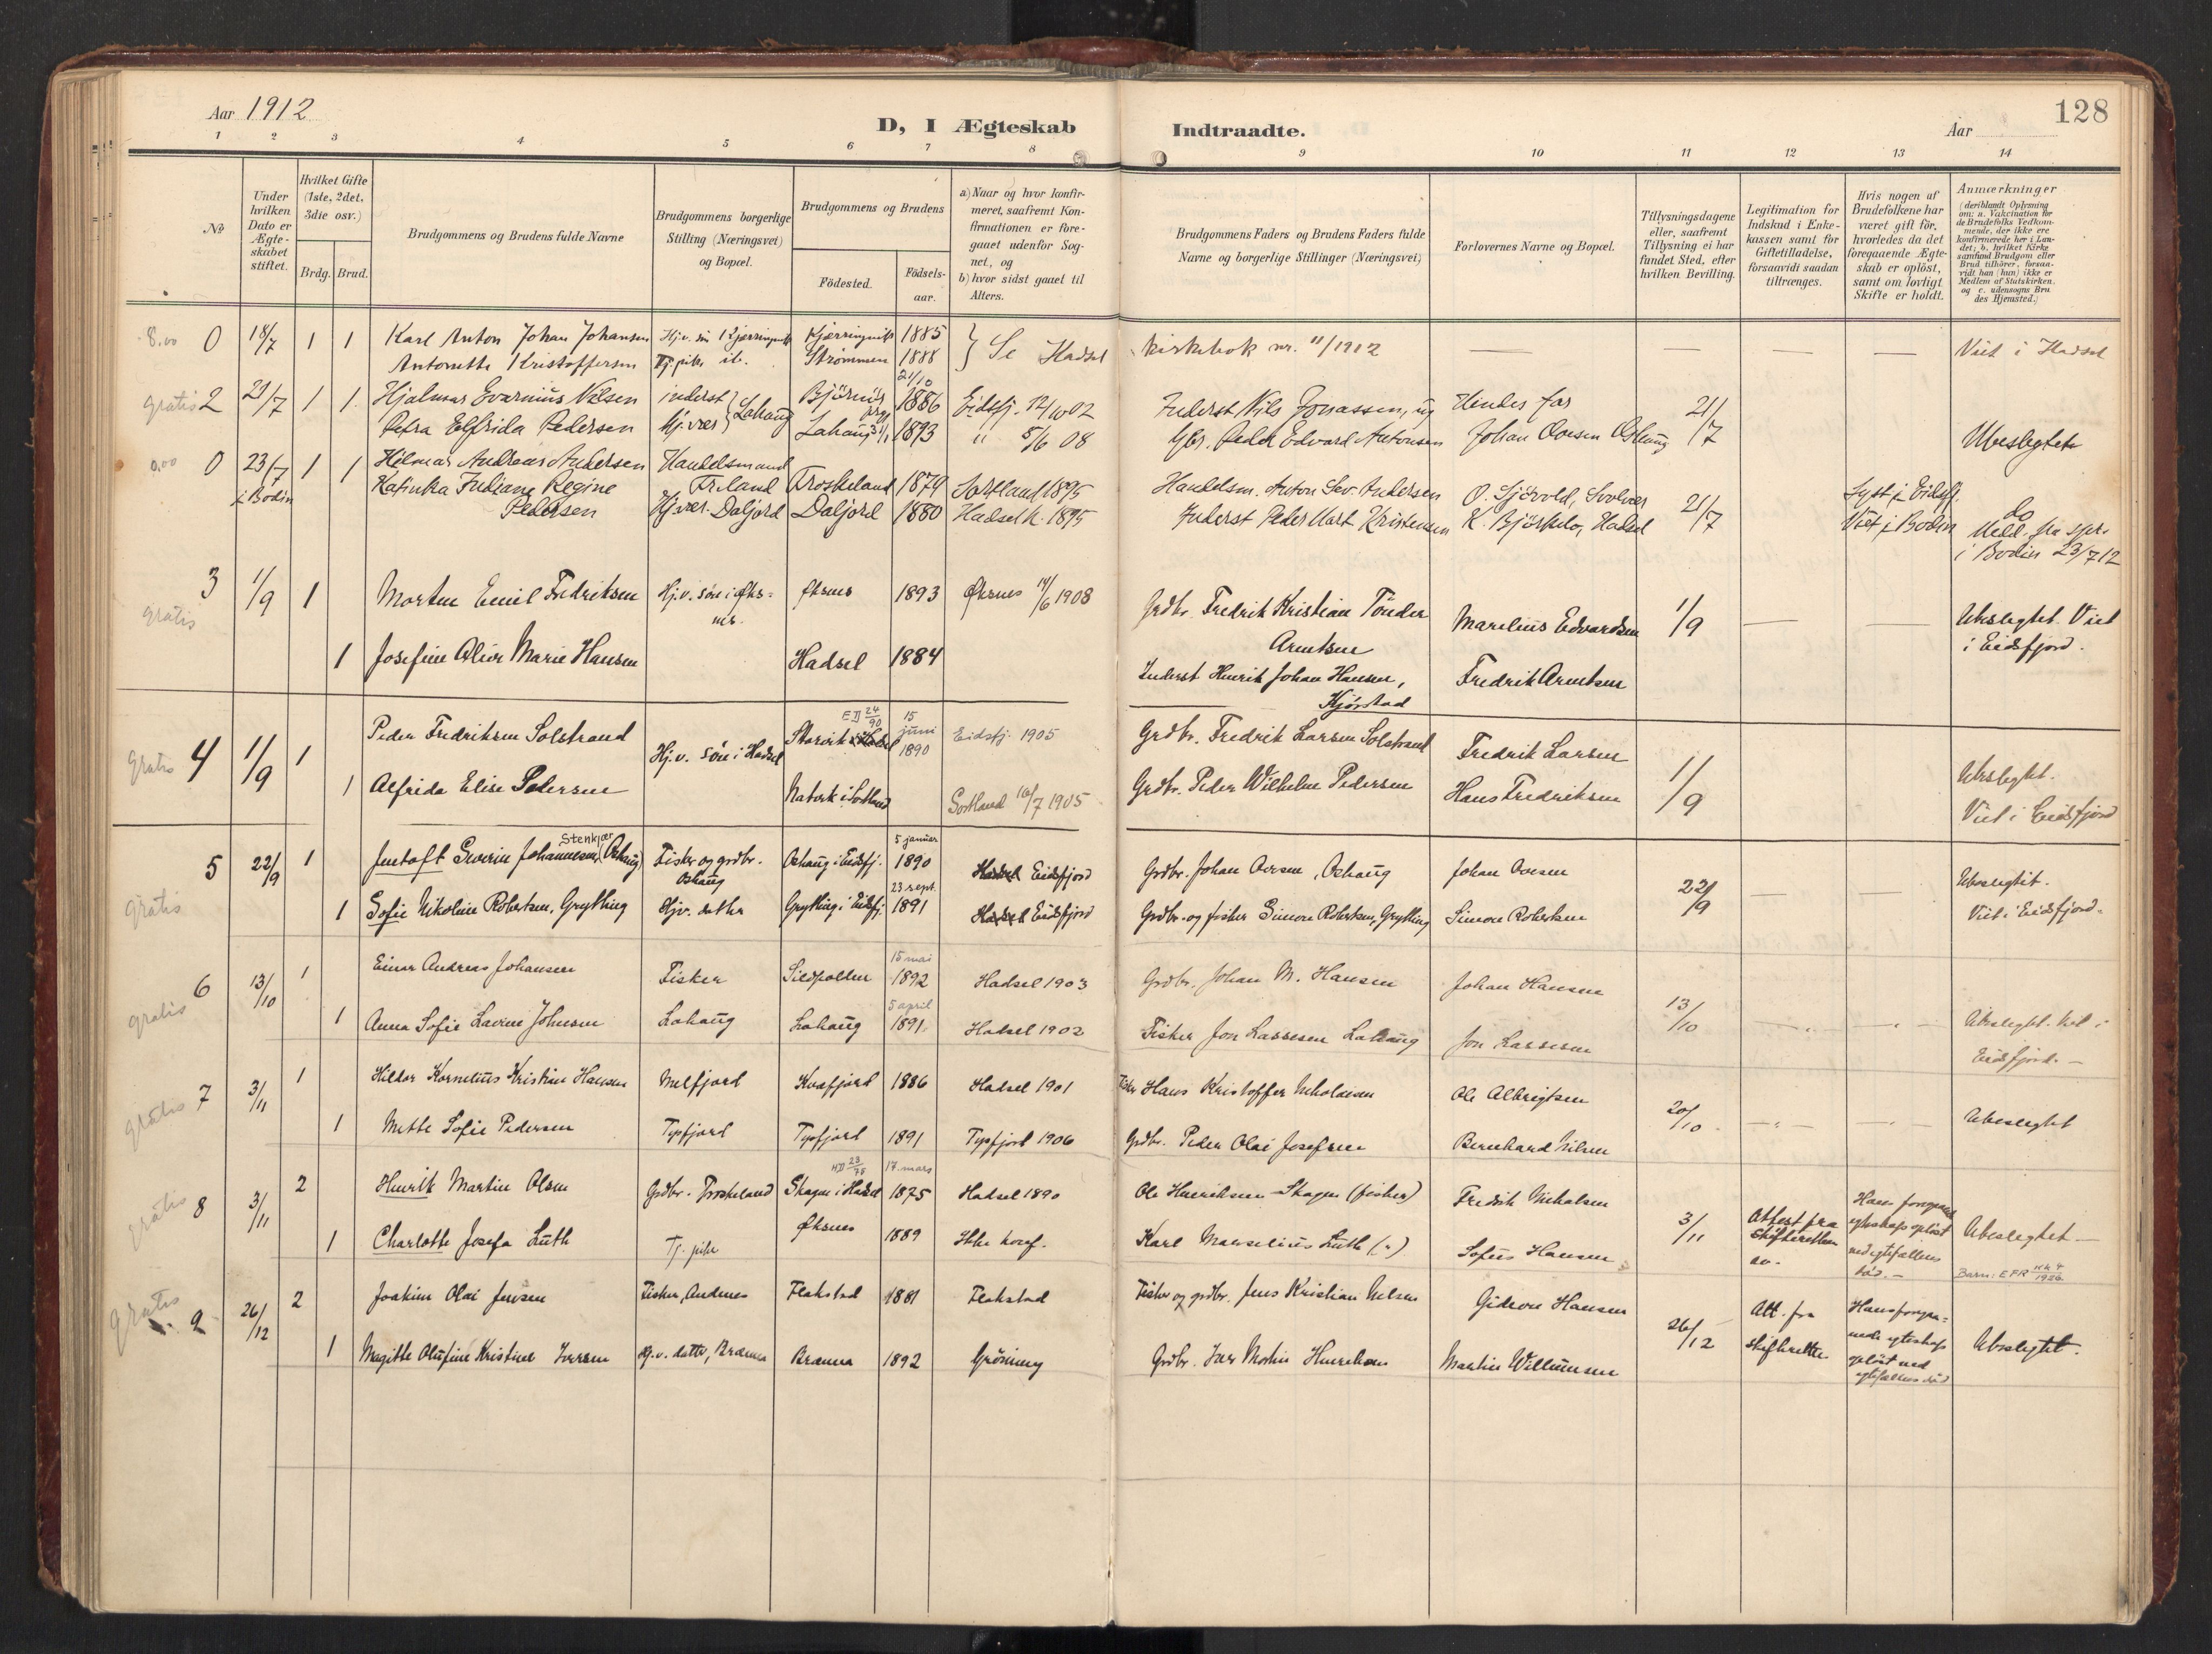 Aar 1912
D, I Ægteskab
Indtraadte.
Aar
128
1 2 3 4 5 6 7 8 9 10 11 12 13 14
No
Under hvilken Dato er Ægte-skabet stiftet.
Hvilket Gifte (1ste, 2det, 3die osv.)
Brdg. Brud.
Brudgommens og Brudens fulde Navne
Brudgommens borgerlige Stilling (Næringsvei) og Bopæl.
Brudgommens og Brudens
Fødested.
Fødsels-aar.
a) Naar og hvor konfir-meret, saafremt Kon-firmationen er fore-gaaet udenfor Sog-net, og
b) hvor sidst gaaet til Alters.
Brudgommens Faders og Brudens Faders fulde Navne og borgerlige Stillinger (Næringsvei)
Forlovernes Navne og Bopæl.
Tillysningsdagene eller, saafremt Tillysning ei har fundet Sted, efter hvilken Bevilling.
Legitimation for Indskud i Enke-kassen samt for Giftetilladelse, forsaavidt saadan tiltrænges.
Hvis nogen af Brudefolkene har været gift før, hvorledes da det foregaaende Ægte-skab er opløst, samt om lovligt Skifte er holdt.
Anmærkninger
(deriblandt Oplysning om: a. Vakcination for de Brudefolks Vedkom-mende, der ikke ere konfirmerede her i Lan-det; b. hvilket Kirke samfund Brudgom eller Brud tilhører, forsaa-vidt han (hun) ikke er Medlem af Statskirken, og c. udensogns Bru des Hjemsted.)
8.00 0 18/7 1 1 Karl Anton Johan Johansen Kjerringnes 1885 Se Hadsel kirkebok nr. 11/1912 Viet i Hadsel
Antonette Kristoffersen Tj. pike Strømmen 1888
gratis 2 21/7 1 1 Hjalmar Evarnius Nilsen inderst Lahaug 21/10 1886 Eidsfj. 12/10 02 Inderst Nils Jonassen, Hendes far 21/7
Petra Elfrida Pedersen Hj. vær Lahaug 1893 " 5/6 08 Gbr. Peder Edvard Antonsen Johan Ovesen Ubeslegtet
0.00 0 23/7 i Bodin 1 1 Hilmar Andreas Andersen Handelsmand Froskeland 1879 Sortland 1895 Handelsm. Anton Sev. Andersen O. Sjövold, Svolvær 21/7 Lyst i Eidsfj. do
Katinka Juliane Regine Pedersen Hj. vær. Daljord Daljord 1880 Hadsel k. 1895 Inderst Peder Mart. Kristensen K. Björklo, Hadsel Viet i Bodin Medd. fra spr. i Bodin 23/7 12
gratis 3 1/9 1 Morten Emil Fredriksen Hj. v. søn i Øks-nes. Øksnes 1893 Øksnes 14/6 1908 Grdbr. Fredrik Kristian Tönder Arntsen Marelius Edvardsen 1/9 Ubeslegtet. Viet i Eidsfjord.
1 Josefine Olive Marie Hansen Hadsel 1884 Inderst Henrik Johan Hansen, Kjørstad Fredrik Arntsen
Gratis 4 1/9 1 Peder Fredriksen Solstrand Hj. v. søn i Hadsel ED 24/90 15 juni 1890 Eidsfj. 1905 Grdbr. Fredrik Larsen Solstrand Fredrik Larsen 1/9 Ubeslegtet.
1 Alfrida Elise Pedersen i Sortland Sortland 16/7 1905 Grdbr. Peder Wilhelm Pedersen Hans Fredriksen Viet i Eidsfjord
gratis 5 22/9 1 Jentoft Severin Johannesen, Stenkjær Oshaug Fisker og grdbr. Oshaug Oshaug i Eidsfj. 5 januar 1890 Hadsel Eidsfjord Grdbr. Johan Ovesen, Oshaug Johan Ovesen 22/9 Ubeslegtet.
1 Sofie Nikoline Robertsen, Grytting Hjv. datter Grytting i Eidsfj. 23 sept. 1891 Hadsel Eidsfjord Grdbr. og fisker Simon Robertsen, Grytting Simon Robertsen Viet i Eidsfjord.
gratis 6 13/10 1 Einar Andreas Johansen Fisker Sildpollen 15 mai 1892 Hadsel 1903 Grdbr. Johan M. Hansen Johan Hansen 13/10 Ubeslegtet. Viet i
1 Anna Sofie Lavine Johnsen Lahaug Lahaug 5 april 1891 Hadsel 1902 Fisker Jon Lassesen Lahaug Jon Lassesen Eidsfjord.
gratis 7 3/11 1 Hildor Kornelius Kristian Hansen Melfjord Kvæfjord 1886 Hadsel 1901 Fisker Hans Kristoffer Nikolaisen Ole Albrigtsen 20/10 Ubeslegtet
1 Mette Sofie Pedersen Typfjord Typfjord 1891 Typfjord 1906 Grdbr. Peder Olai Josefsen Bernhard Nilsen
gratis 8 3/11 2 Henrik Martin Olsen Grdbr. Froskeland Skagen i Hadsel HD 23/75 17 mars 1875 Hadsel 1890 Ole Henriksen Skagen (fisker) Fredrik Nicholsen 3/11 Attest fra Skifteretten av. Hans foregaaende egteskap opløst ved egtefællens død. Ubeslegtet
1 Charlotte Josefa Luth Tj. pike Øksnes 1889 Ikke konf. Karl Marselius Luth (") Sofus Hansen Barn: EFR kk 4 1926
Gratis 9 26/12 2 Joakim Olai Jensen Fisker, Andenes Flakstad 1881 Flakstad Fisker og grdbr. Jens Kristian Nilsen Gideon Hansen 26/12 Att. fra skifteretten Hans foregaa-ende egteskap opløst ved egtefællens død Ubeslegtet.
1 Magitte Olufine Kristine Iversen Hj. v. datter, Brænna Brænna 1892 Grønning Grdbr. Iver Martin Henriksen Martin Willumsen